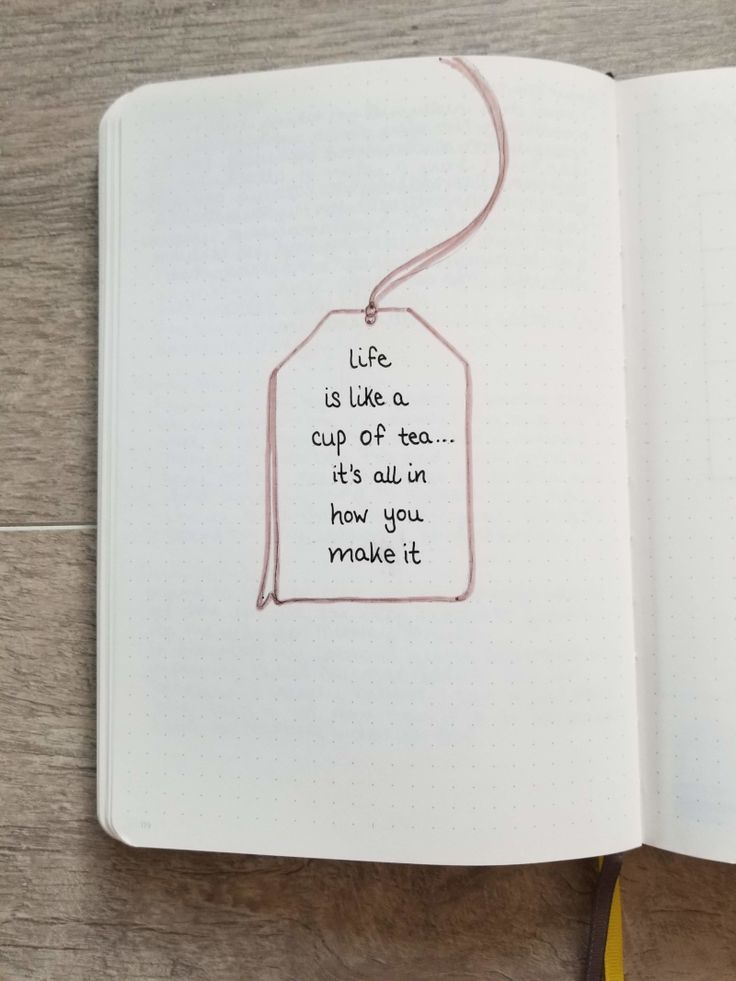 life
is like a
cup of tea...
it's all in
how you
make it